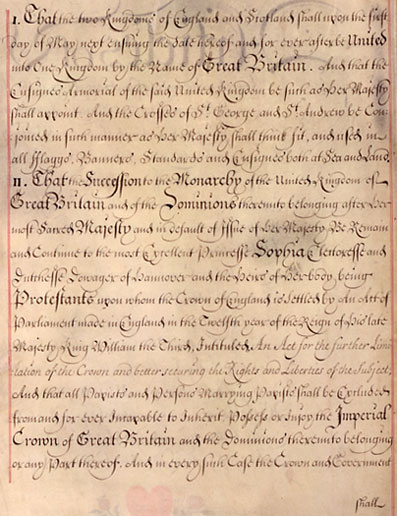 I. That the two Kingdoms of England and Scotland shall upon the first
day of May next ensuing the date hereof and for ever after be United
into One Kingdom by the Name of Great Britain. And that the
Ensignes Armorial of the said United Kingdom be such as Her Majesty
shall appoint And the Crosses of St. George and St. Andrew be Con-
joined in such manner as Her Majesty shall think fit, and used in
all Flaggs, Banners, Standards and Ensignes both at Sea and Land.
II. That the Succession to the Monarchy of the United Kingdom of
Great Britain and of the Dominions thereunto belonging after Her
most Sacred Majesty and in default of Issue of Her Majesty Be Remain
and Continue to the most Excellent Princesse Sophia Electoresse and
Dutchesse Dowager of Hannover and the Heirs of Her body, being
Protestants upon whom the Crown of England is settled by An Act of
Parliament made in England in the Twelfth year of the Reign of His late
Majesty King William the Third, Intituled, An Act for the further Limi
tation of the Crown and better securing the Rights and Liberties of the Subject,
And that all Papists and Persons Marrying Papists shall be Excluded
from and for ever Incapable to Inherit Possess or Enjoy the Imperial
Crown of Great Britain and the Dominions thereunto belonging
or any Part thereof. And in every such Case the Crown and Government
shall